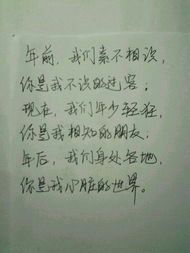 年前，我们素不相识，
你是我不识的过客；
现在，我们年少轻狂，
你是我相知的朋友；
年后，我们身处各地，
你是我心脏的世界。